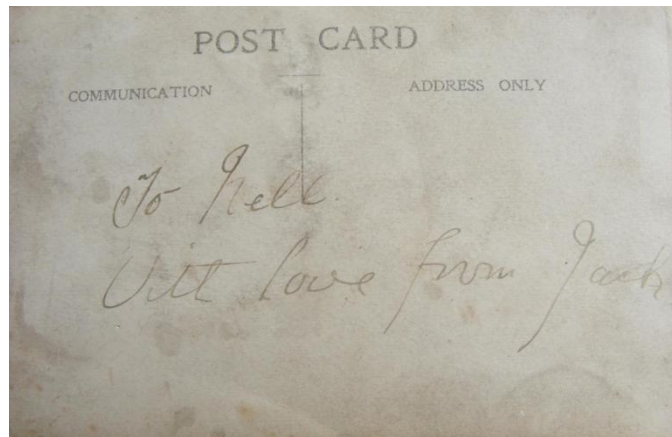 POST CARD
COMMUNICATION ADDRESS ONLY
To Nell.
Witt love from Jack